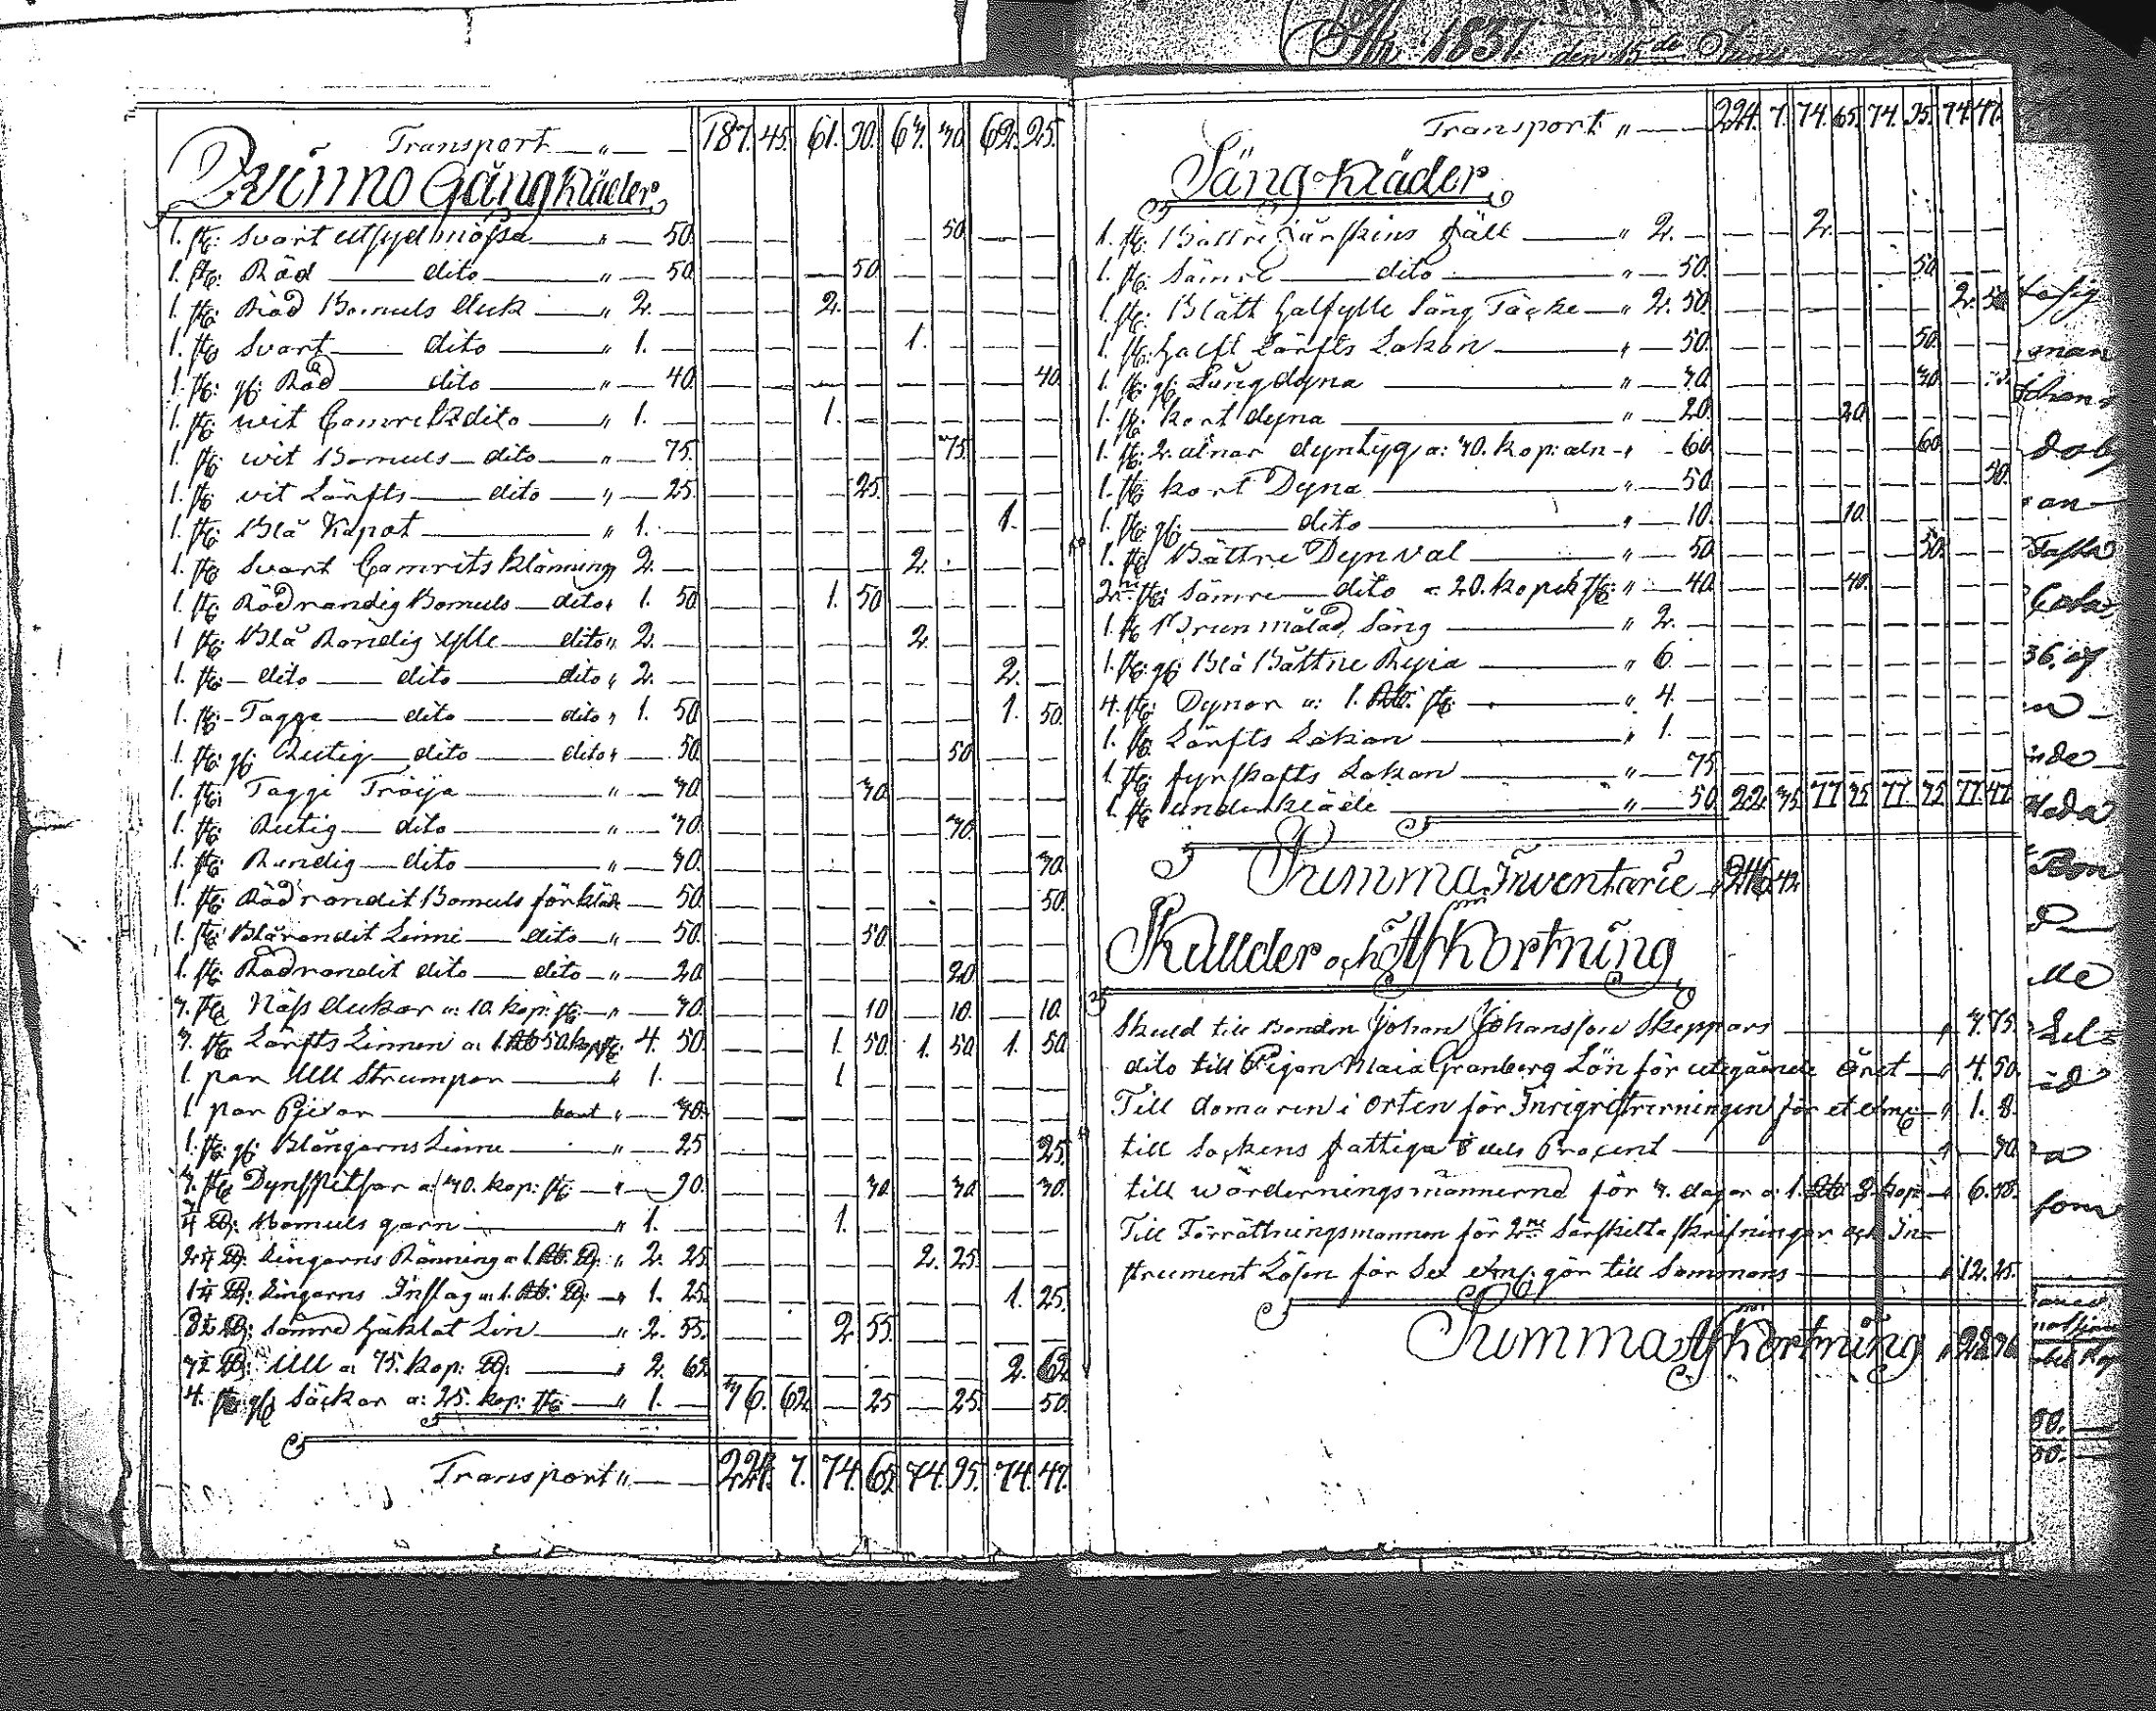 Åhr 1837. den 15de
Transport — " — 187. 45. 61. 30. 63. 30. 62. 25.
Qvinno Gång Kläder
1. st: Svart utsydt mössa — " — 50. 50
1. st: Röd — dito — " — 50. 50.
1. st: Röd Bomuls duk — " 2. 2.
1. st: Svart — dito — " 1. 1.
1. st: gl: Röd — dito — " — 40. 40.
1. st: wit Camrik dito — " 1. 1.
1. st: wit Bomuls — dito — " — 75. 75.
1. st: vit Lärfts — dito — " — 25. 25.
1. st: Blå Kapot — " 1. 1.
1. st: Svart Camrits Klänning " 2. 2.
1. st: Rödrandig Bomuls — dito " 1. 50 1. 50
1. st: Blå Randig ylle — dito " 2. 2.
1. st: — dito — dito — dito " 2. 2.
1. st: Tagge — dito — dito " 1. 50 1. 50.
1. st: gl: Rutig — dito — dito " — 50. 50
1. st: Taggi Tröija — " — 30. 30.
1. st: Rutig — dito — " — 30. 30.
1. st: Randig — dito — " — 30. 30.
1. st: Rödrandit Bomuls förkläde — 50. 50.
1. st: Blårandit Linne — dito — " — 50. 50
1. st: Rödrandit dito — dito — " — 20. 20.
3. st: Näss dukar a: 10. kop: st: — " — 30. 10 10. 10.
3. st: Lärfts Linnen a: 1. Rb 50 kop st: 4. 50. 1. 50. 1. 50 1. 50
1. par Ull Strumpor — " 1. 1
1. par — bort " — 30.
1. st: gl: Blångarns Linne — " — 25 25.
3. st: Dynspitsar a: 30. kop: st: — " — 90. 30. 30. 30.
Bomuls garn — " 1. 1.
2 1/4 ℔: Lingarns Ränning a 1. Rb. ℔: " 2. 25. 2. 25.
1 1/4 ℔: Lingarns Inslag a: 1. Rb: ℔: — " 1. 25. 1. 25.
8 1/2 ℔: Sämre häklat Lin — " 2. 55. 2. 55.
3 1/2 ℔: Ull a 75. kop: ℔: — " 2. 62 2. 62
4. st: gl: Säckar a: 25. kop: st: — " 1. — 36. 62. 25 25. 50.
Transport " — 224. 7. 74. 65. 74. 95. 74. 47.
Transport " — 224. 7. 74. 65. 74. 95. 74. 47.
Säng-Kläder
1. st: Bättre fårskins fäll — " 2. 2.
1. st: Sämre — dito — " — 50. 50.
1. st: Blått halfylle Säng Täcke — " 2. 50. 2. 50
1. st: halft Lärfts Lakan — " — 50. 50.
1. st: gl: Långdyna — " — 30. 30.
1. st: kort dyna — " — 20. 20.
1. st: 2. alnar dyntyg a: 30. kop: aln — " — 60. 60.
1. st: kort Dyna — " — 50. 50.
1. st: gl: — dito — " — 10. 10.
1. st: Bättre Dynval — " — 50. 50.
2ne st: Sämre — dito a 20. kopek st: " — 40. 40.
1. st: Brunmålad Säng — " 2.
1. st: gl: Blå Bättre Ryia — " 6.
4. st: Dynor a: 1. Rb: st: — " 4.
1. st: Lärfts Lakan — " 1.
1. st: fyrskafts Lakan — " — 75
1. st: underkläde — " — 50. 22. 35. 77 35 77. 35 77. 47
Summa Inventarie
Skullder och Afkortning
Skuld till Bonden Johan Johansson Skeppars — " 3. 75.
dito till Pigan Maia Granberg Lön för utegående Året — " 4. 50.
Till domaren i orten för Inrigristrerningen för et — " 1. 8.
till Sockens fattiga 1/8 dels Procent — " — 30.
till wärderningsmännerne för 3. dagar a: 1. Rb: 8. kop — " 6. 48.
Till Förrättningsmannen för 2ne Särskilta skrifningar och In=
strument Lösen för Sex gör till Sammans — " 12. 25.
Summa Afkortning